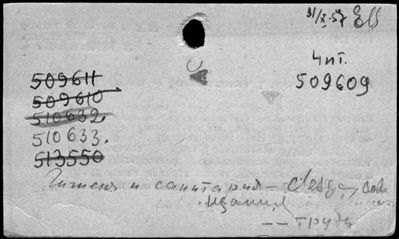 31/X-57
Чит.
509609
509611
509610
510632.
510633.
513550
Гигиена и санитария — съезды, сове
щания
— — труды